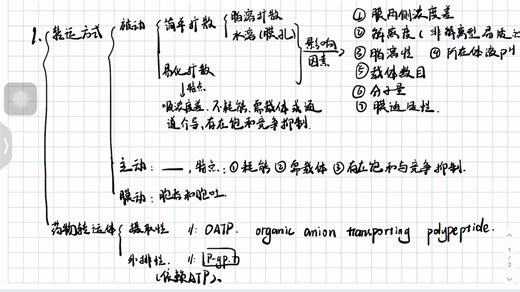 1. 转运方式
被动
简单扩散
脂溶扩散
水溶(膜孔)
易化扩散
↓特点
顺浓度差、不耗能、需载体或通
道介导、存在饱和竞争抑制.
影响
因素
① 膜两侧浓度差
② 解离度 (非解离型易
③ 脂溶性 ④ 所在体液pH
⑤ 载体数目
⑥ 分子量
⑦ 膜通透性.
主动: ——, 特点: ① 耗能 ② 需载体 ③ 存在饱和与竞争抑制.
膜动: 胞吞和胞吐.
药物转运体
摄取性 OATP. organic anion transporting polypeptide.
外排性. P-gp.
(依赖ATP)